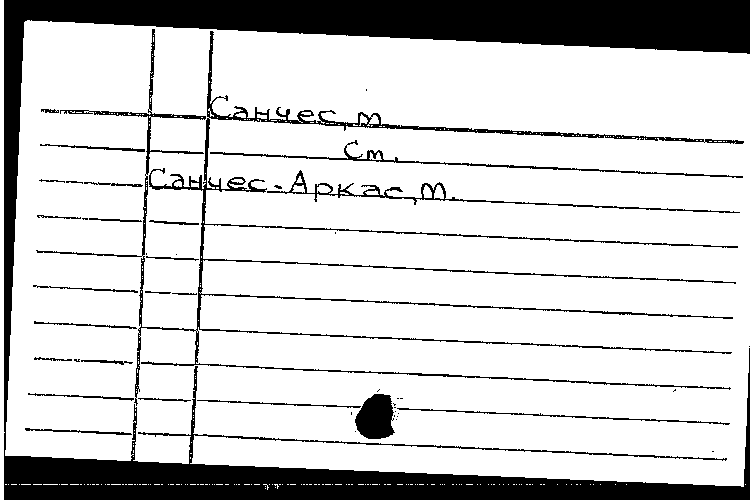 Санчес, М.
См.
Санчес-Аркас, М.